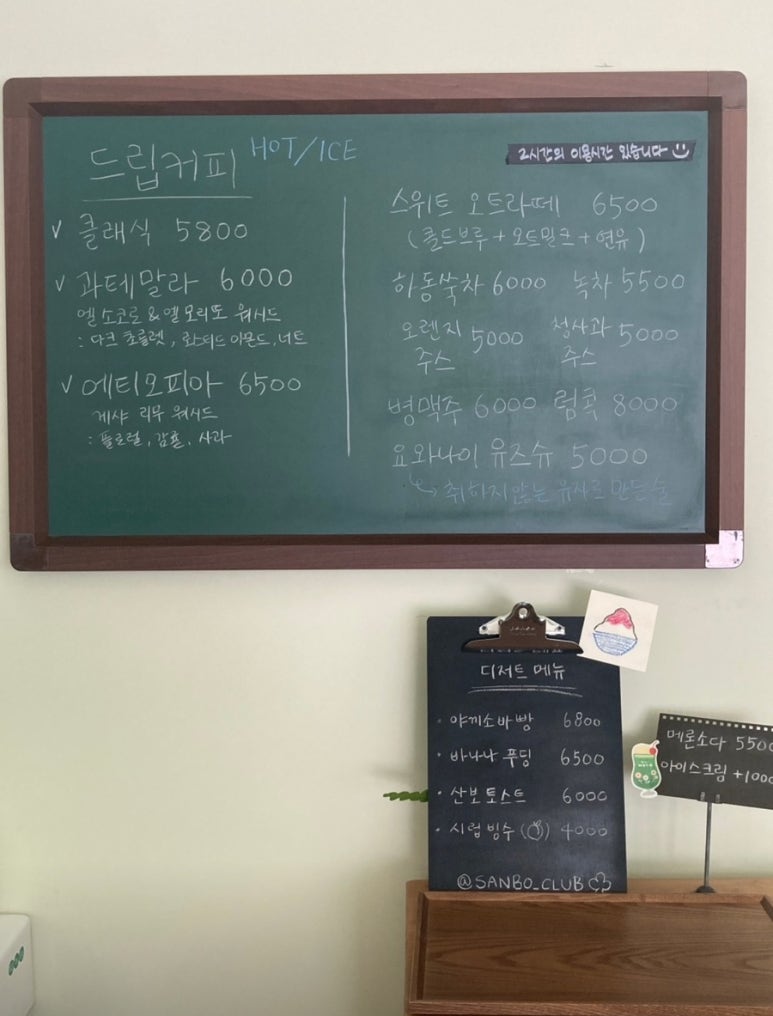 드립커피 HOT/ICE
✓ 클래식 5800
✓ 과테말라 6000
엘 소코로 & 옐 모리또 워시드
: 다크 초콜렛, 로스티드 아몬드, 너트
✓ 에티오피아 6500
게샤 리무 워시드
: 플로럴, 감귤, 사과
2시간의 이용시간 있습니다
스위트 오트라떼 6500
(콜드브루 + 오트밀크 + 연유)
하동쑥차 6000 녹차 5500
오렌지 주스 5000 청사과 주스 5000
병맥주 6000 럼콕 8000
요와나이 유즈슈 5000
취하지 않는 유자로 만든 술
디저트 메뉴
• 야끼소바빵 6800
• 바나나 푸딩 6500
• 산보토스트 6000
• 시럽빙수 ( ) 4000
@SANBO_CLUB
메론소다 5500
아이스크림 +1000